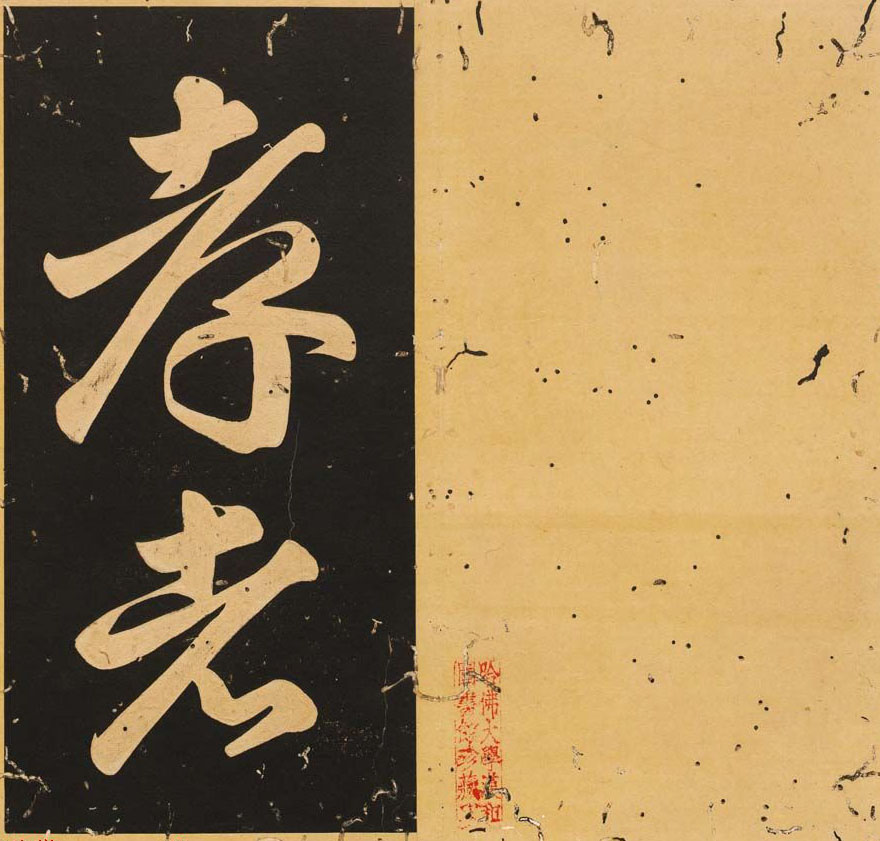 孝者
哈佛大學漢和
圖書館珍藏印